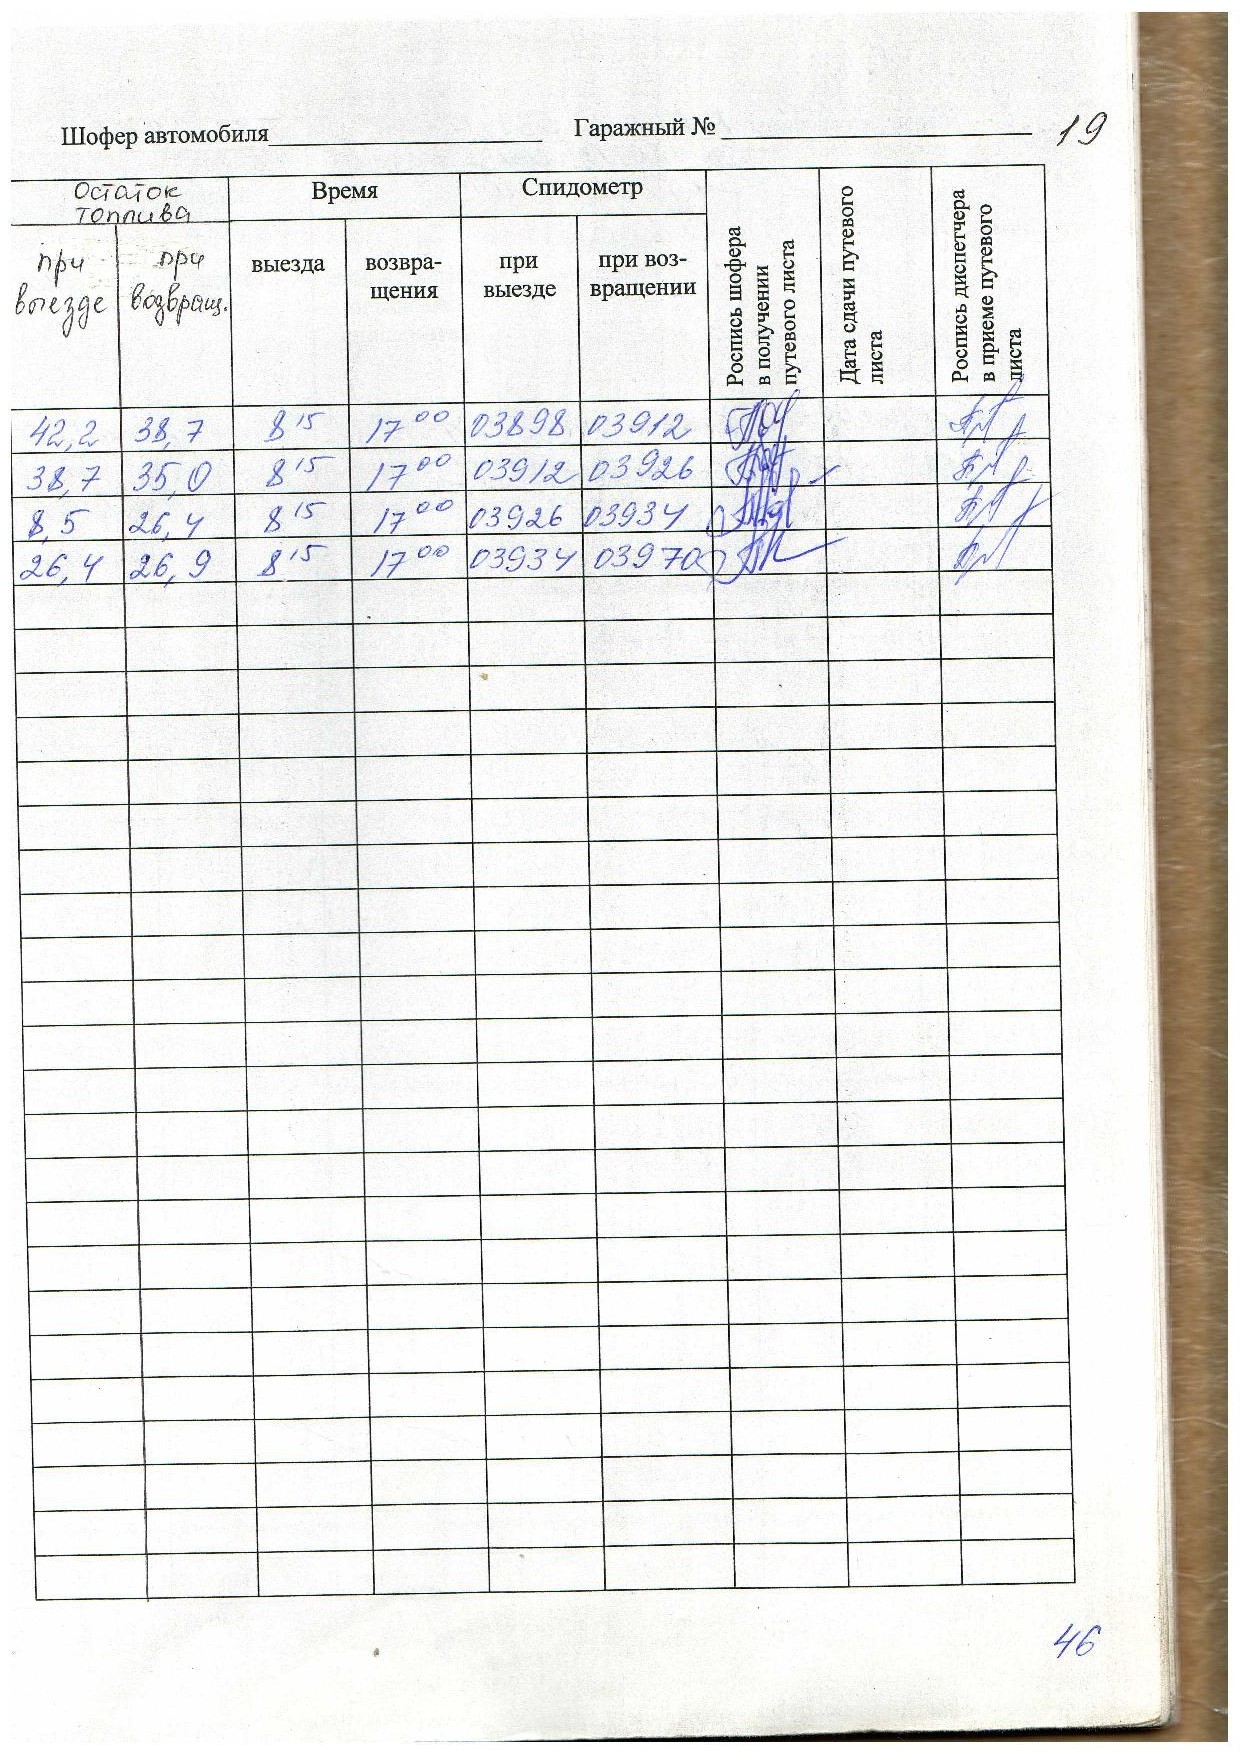 Шофер автомобиля Гаражный № 19
Остаток топлива Время Спидометр Роспись шофера в получении путевого листа Дата сдачи путевого листа Роспись диспетчера в приеме путевого листа
при выезде при возвращ. выезда возвра-щения при выезде при воз-вращении
42,2 38,7 8 15 17 00 03898 03912
38,7 35,0 8 15 17 00 03912 03926
8,5 26,4 8 15 17 00 03926 03934
26,4 26,9 8 15 17 00 03934 03970
46